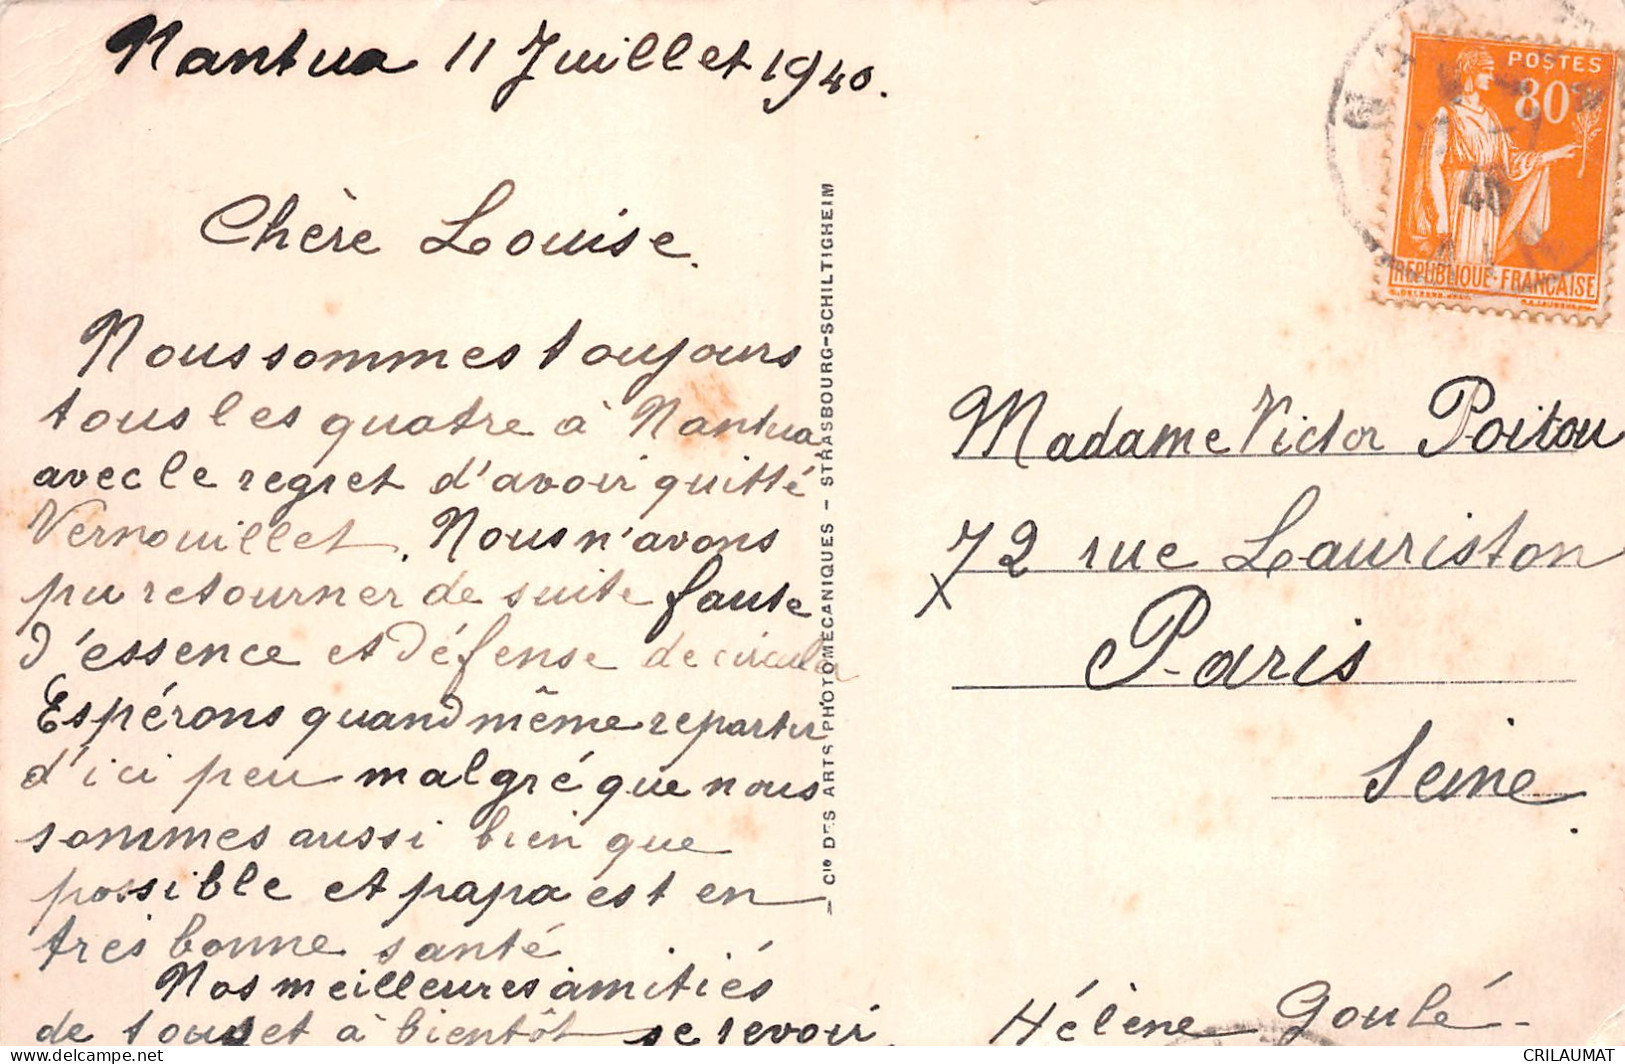 Nantua 11 Juillet 1940.
Chère Louise.
Nous sommes toujours
tous les quatre à Nantua
avec le regret d'avoir quitté
Vernouillet. Nous n'avons
pu retourner de suite faute
d'essence et défense de circuler
Espérons quand même repartir
d'ici peu malgré que nous
sommes aussi bien que
possible et papa est en
très bonne santé
Nos meilleures amitiés
de tous et à bientôt se revoir.
Hélène Goulé
Cie DES ARTS PHOTOMÉCANIQUES - STRASBOURG-SCHILTIGHEIM
POSTES
80c
REPUBLIQUE-FRANÇAISE
40
Madame Victor Poitou
72 rue Lauriston
Paris
Seine.
CRILAUMAT